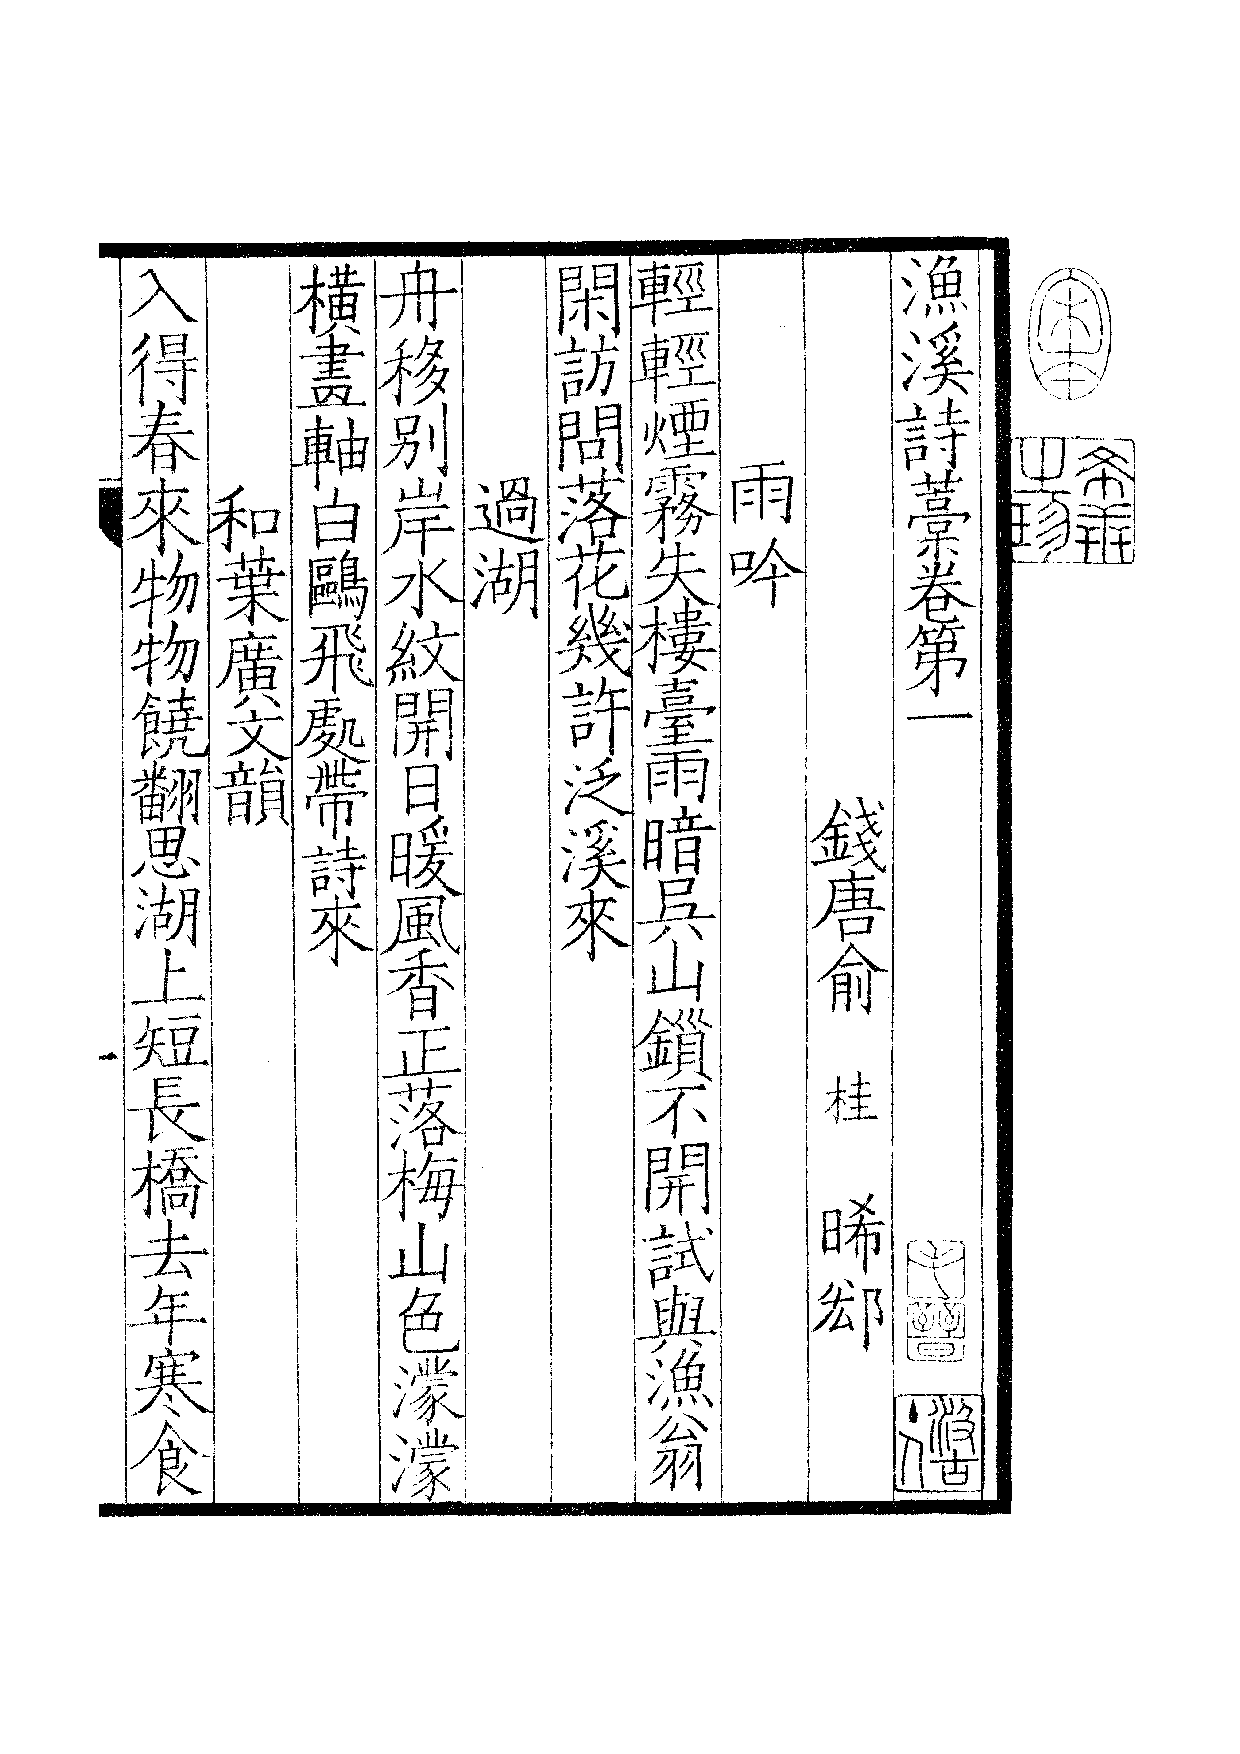 漁溪詩藳卷第一
錢唐俞桂晞郄
雨吟
輕輕煙霧失樓臺雨暗吳山鎖不開試與漁翁
閑訪問落花幾許泛溪來
過湖
舟移別岸水紋開日暖風香正落梅山色濛濛
橫畫軸白鷗飛處帶詩來
和葉廣文韻
入得春來物物饒翻思湖上短長橋去年寒食
宋本
希世之珍
毛晉
汲古主人